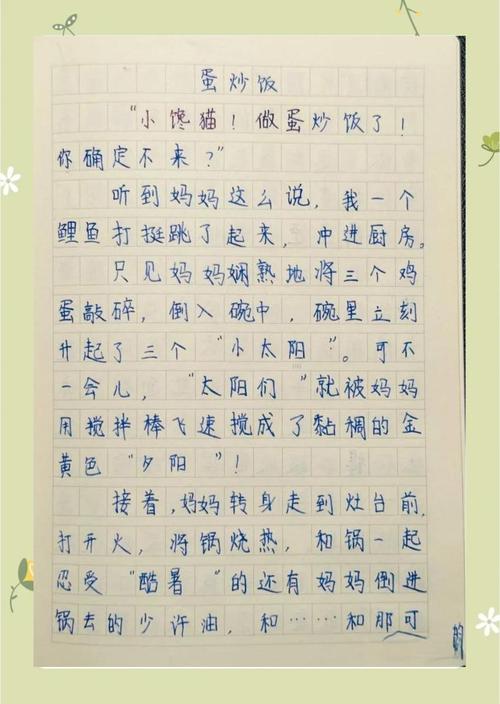 蛋炒饭
“小馋猫！做蛋炒饭了！
你确定不来？”
听到妈妈这么说，我一个
鲤鱼打挺跳了起来，冲进厨房。
只见妈妈娴熟地将三个鸡
蛋敲碎，倒入碗中，碗里立刻
升起了三个“小太阳”。可不
一会儿，“太阳们”就被妈妈
用搅拌棒飞速搅成了黏稠的金
黄色“夕阳”！
接着，妈妈转身走到灶台前，
打开火，将锅烧热，和锅一起
忍受“酷暑”的还有妈妈倒进
锅去的少许油，和……和那可
的